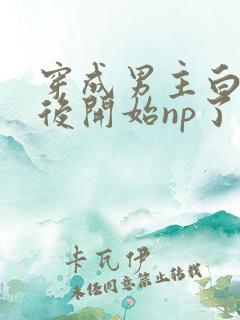 穿成男主白
後開始np了
卡瓦伊
未經同意禁止轉載